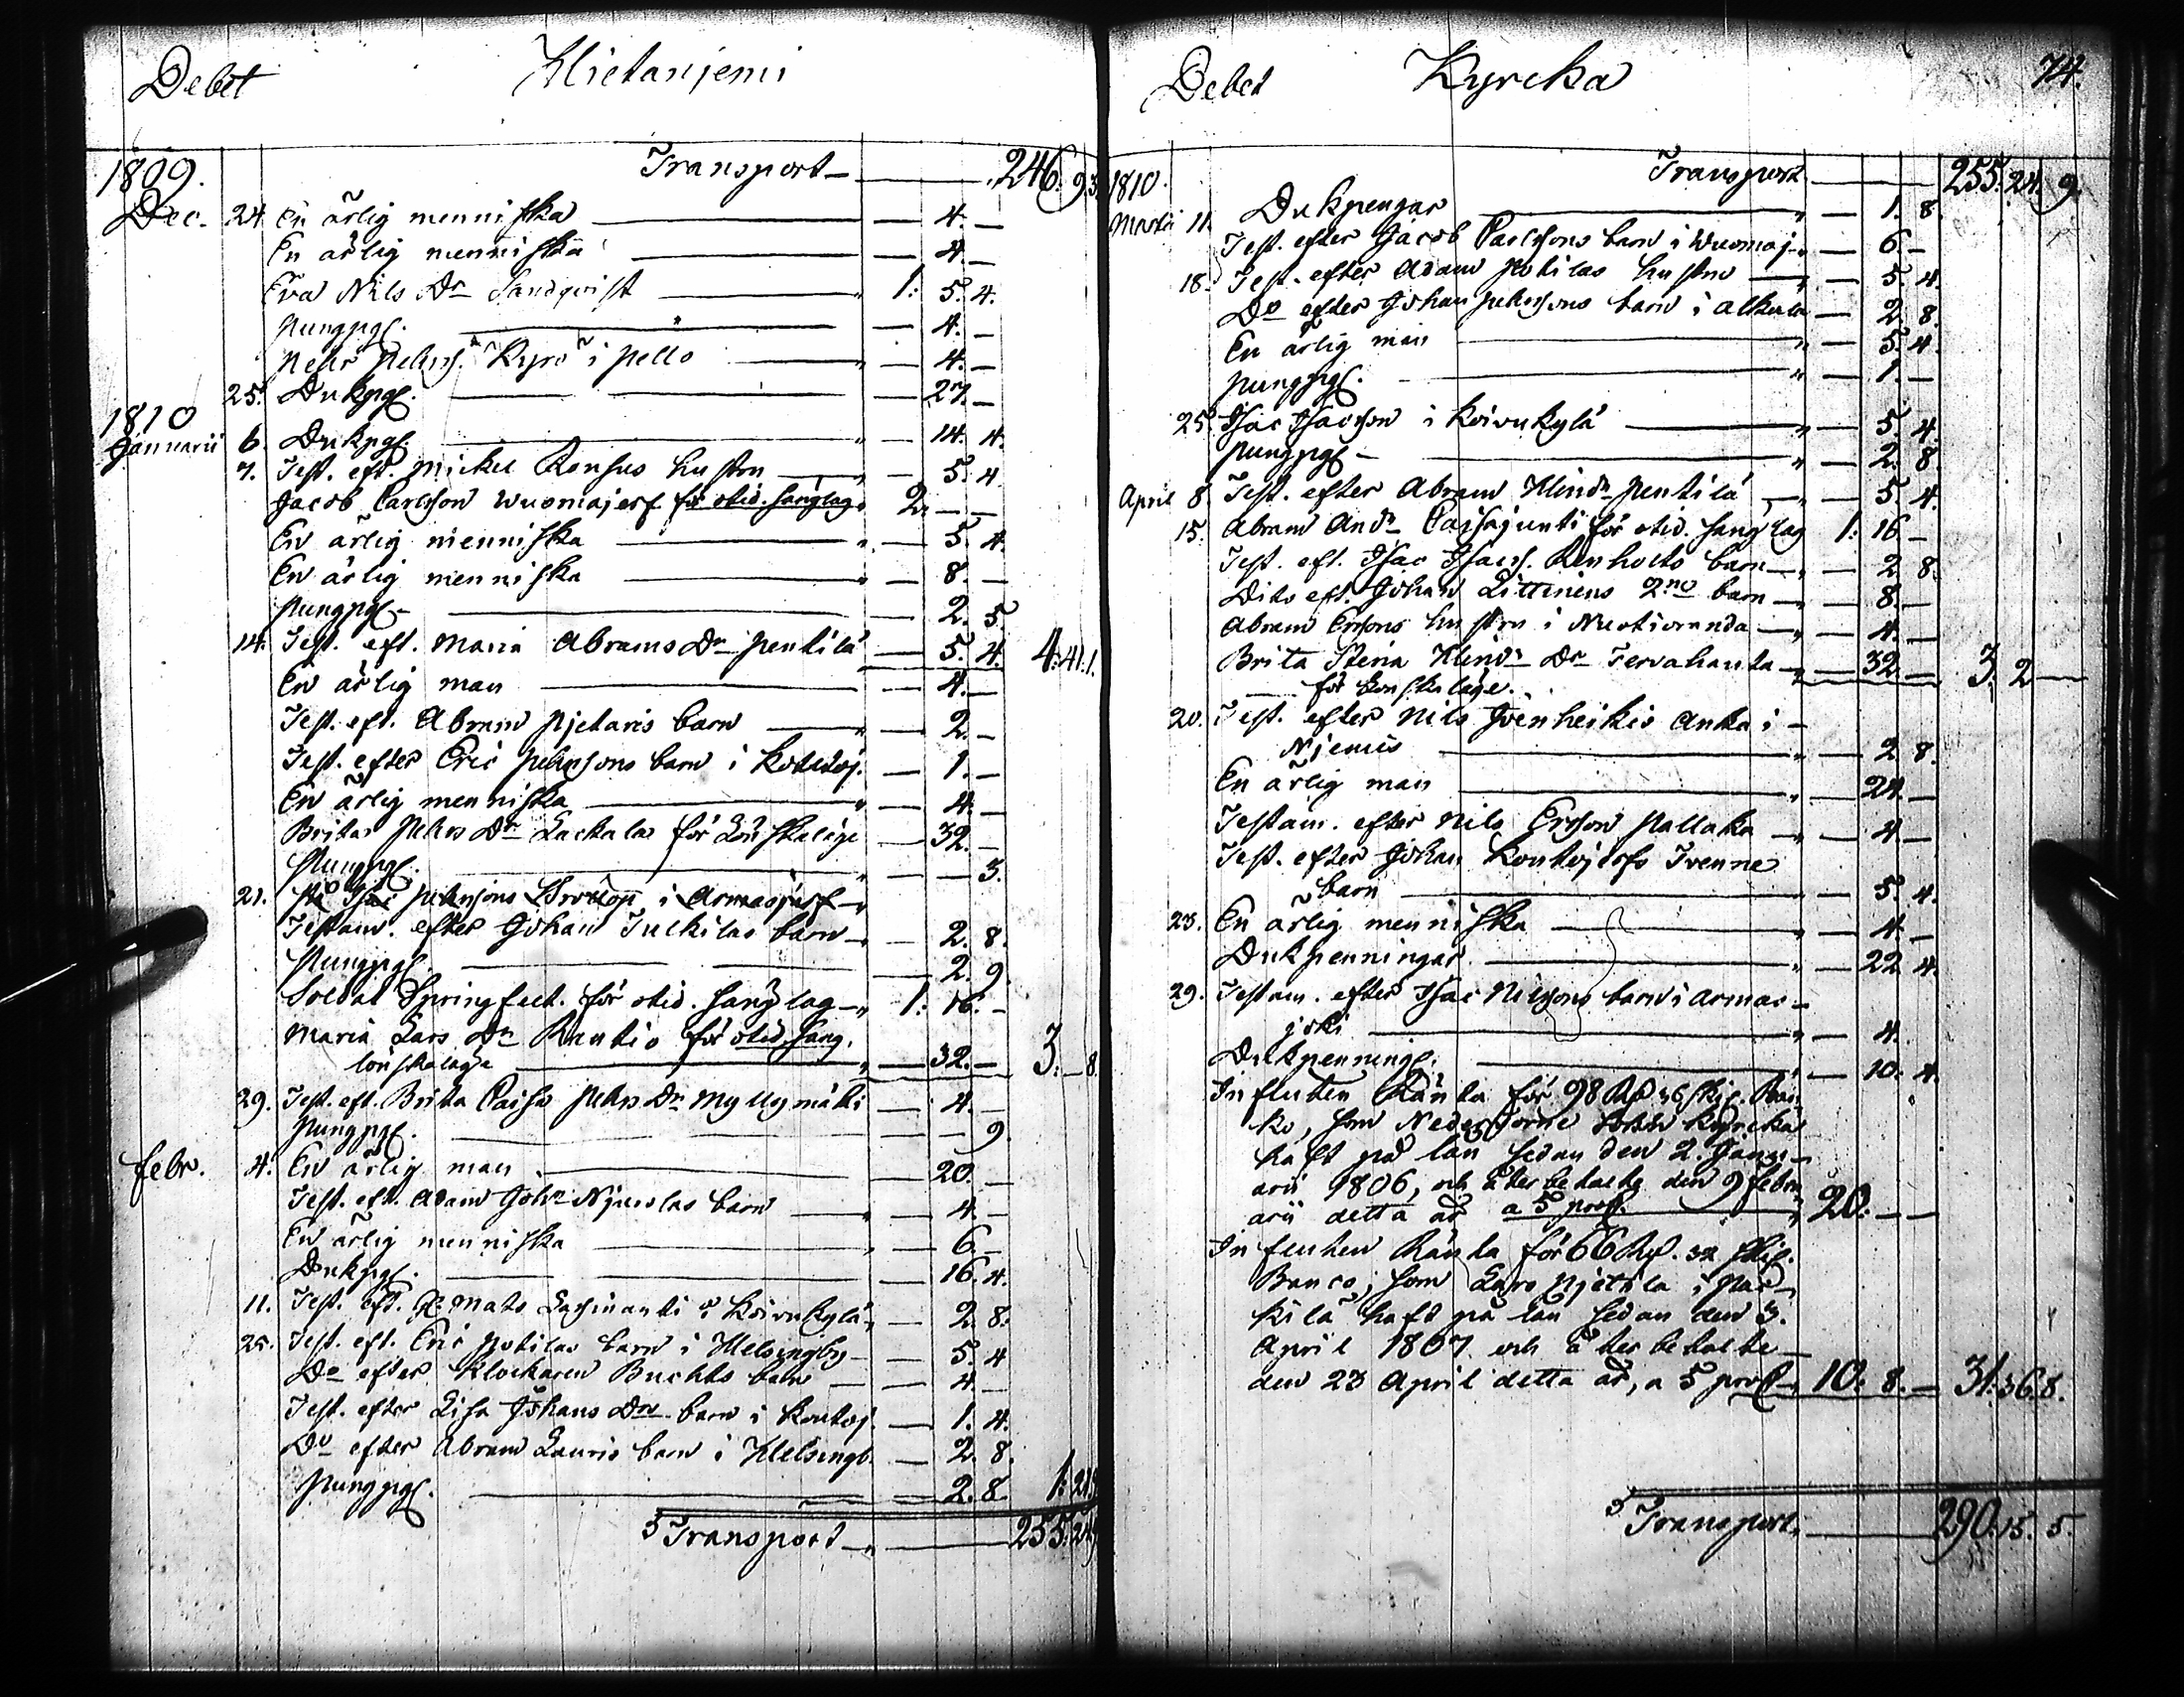 Debet Hietaniemi
1809. Transport 246. 9 3
Dec. 24. En ärlig menniska — 4. —
En ärlig menniska — 4. —
Eva Nils Dr Sandqvist 1: 5. 4.
Pungpgr. — 4. —
Pehr Pehrss. Kyrö i Pello — 4. —
25. Dukpgr. — 27. —
1810
Januarii 6. Dukpgr. — 14. 4.
7. Test. eft. Mickel Ronsus hustru — 5. 4
Jacob Carlsson Wuomajerf för otid. sänglag 2. — —
En ärlig menniska — 5. 4.
En ärlig menniska — 8. —
Pungpgr. — 2. 5.
14. Test. eft. Maria Abrams Dr Pentilä — 5. 4. 4: 41. 1.
En ärlig man — 4. —
Test. eft. Abram Pjetaris barn — 2. —
Test. efter Eric Pehrssons barn i — 1. —
En ärlig menniska — 4. —
Brita Pehrs Dr Lackala för Lönskaläge — 32. —
Pungpgr. — — 3.
21. På Isac Pehrssons Bröllop i Armasjerf
Testam. efter Johan Tulkilas barn — 2. 8.
Pungpgr. — 2. 9
Soldat Springfelt. för otid. sänglag 1: 16. —
Maria Lars Dr Rautio för otid. säng.
lönskaläge — 32. — 3. — 8.
29. Test. eft. Brita Caisa Pehrs Dr Myllymäki — 4. —
Pungpgr. — — 9.
Febr. 4. En ärlig man — 20. —
Test. eft. Adam Johns barn — 4. —
En ärlig menniska — 6. —
Dukpgr. — 16. 4.
11. Test. eft. Mats i Koivukylä — 2. 8.
25. Test. eft. Eric Potilas barn i Helsingby — 5. 4
Do efter Klockaren Buchts barn — 4. —
Test. efter Lisa Johans Drs barn i — 1. 4.
Do efter Abram Lauris barn i Helsingb. — 2. 8.
Pungpgr. — 2. 8. 1: 21.
Transport 255. 24. 9
Debet Kyrcka 74.
1810. Transport 255. 24. 9
Martii 11. Dukpengar — 1. 8.
Test. efter Jacob Carlssons barn i Wuomaj. — 6. —
18. Test. efter Adam Potilas hustru — 5. 4.
Do efter Johan Pehrssons barn i Alkula — 2. 8.
En ärlig man — 5. 4.
Pungpgr. — 1. —
25. Isac Isacsson i Koivukylä — 5. 4.
Pungpgr. — 2. 8.
April 8. Test. efter Abram Hindr Pentilä — 5. 4.
15. Abram Andr för otid. sänglag 1: 16 —
Test. eft. Isac Isacss. barn — 2. 8.
Dito eft. Johan Littinens 2ne barn — 8. —
Abram Erssons hustru i — 4. —
Brita Stena Hindr Dr Tervahauta — 32. — 3. 2 —
för lönskaläge.
20. Test. efter Nils enka i
Njemis — 2. 8.
En ärlig man — 24. —
Testam. efter Nils Ersson Pallaka — 4. —
Test. efter Johan Tvenne
barn — 5. 4.
23. En ärlig menniska — 4. —
Dukpenningar — 22. 4.
29. Testam. efter Isac Nilssons barn i Armas-
joki — 4.
Dukpenningr. — 10. 4.
Influten Ränta för 98 Rd 36 skil. Ban-
ko, som Nedertorne Kyrcka
haft på lån sedan den 2. Janu-
arii 1806, och återbetalte den 9 febru-
arii detta år a 5 proC. 20. — —
Influten Ränta för 66 Rd. 32 skil.
Banco, som Lars Pjettila i Pac-
kilä haft på lån sedan den 3.
April 1807 och återbetalte
den 23 April detta år, a 5 proC. 10. 8. — 31: 36. 8.
Transport 290. 15. 5.